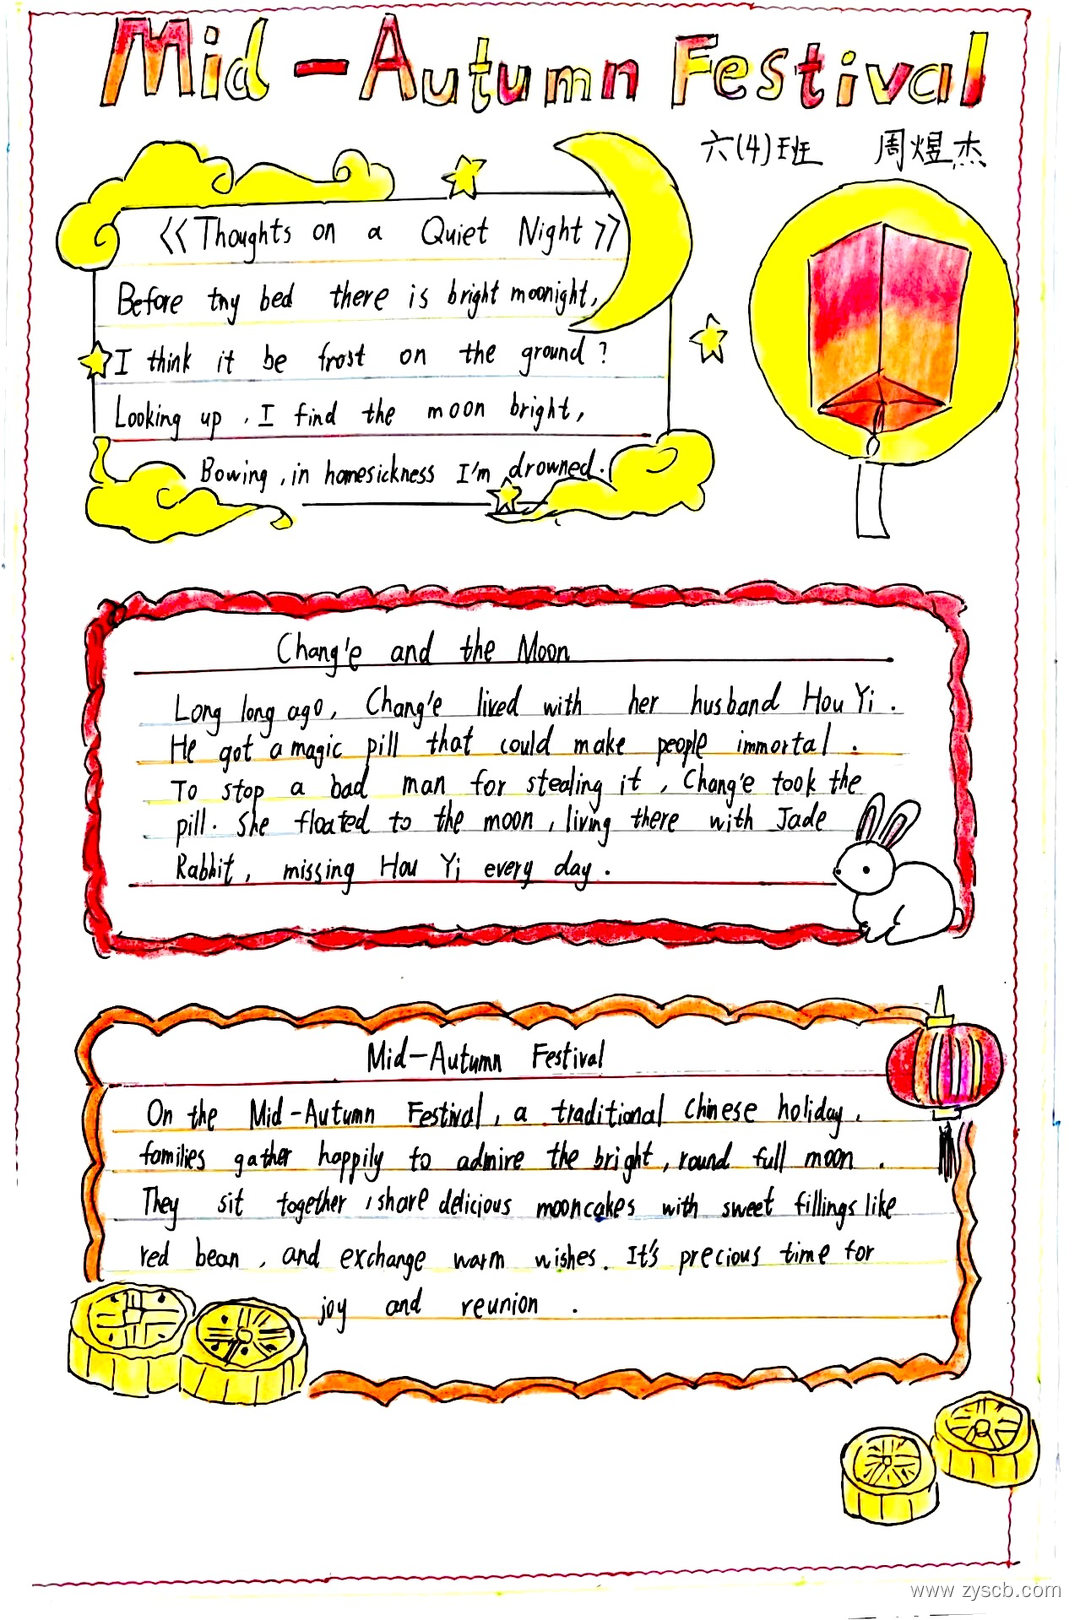 Mid-Autumn Festival
六(4)班 周煜杰
<<Thoughts on a Quiet Night>>
Before tny bed there is bright moonight,
I think it be frost on the ground?
Looking up, I find the moon bright,
Bowing, in homesickness I'm drowned.
Chang'e and the Moon
Long long ago, Chang'e lived with her husband Hou Yi.
He got a magic pill that could make people immortal.
To stop a bad man for stealing it, Chang'e took the
pill. She floated to the moon, living there with Jade
Rabbit, missing Hou Yi every day.
Mid-Autumn Festival
On the Mid-Autumn Festival, a traditional Chinese holiday,
families gather happily to admire the bright, round full moon.
They sit together, share delicious mooncakes with sweet fillings like
red bean, and exchange warm wishes. It's precious time for
joy and reunion.
www.zyscb.com